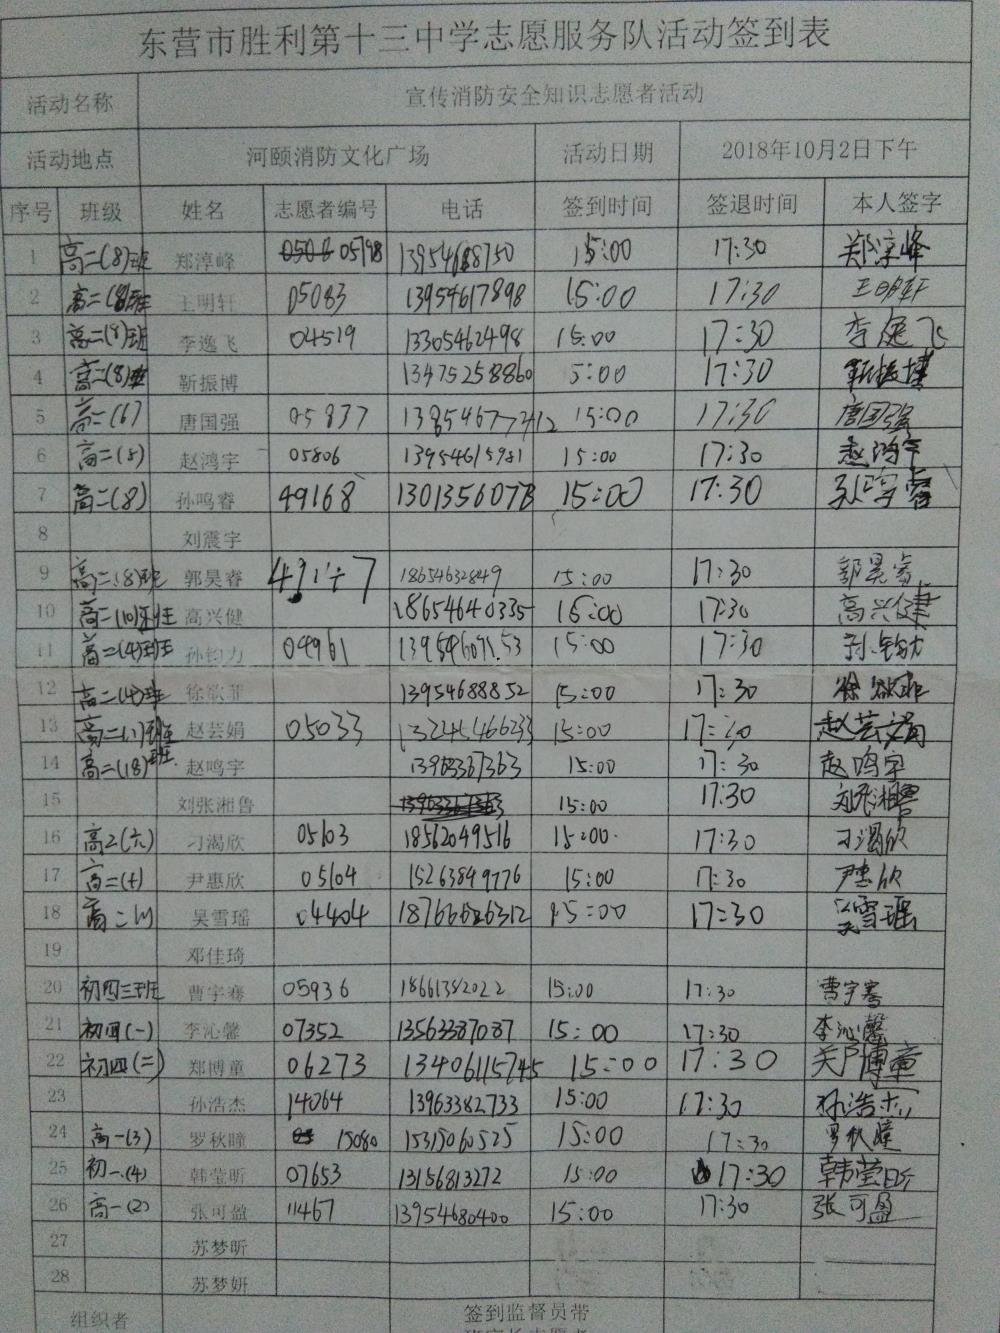 东营市胜利第十三中学志愿服务队活动签到表
活动名称 宣传消防安全知识志愿者活动
活动地点 河颐消防文化广场 活动日期 2018年10月2日下午
序号 班级 姓名 志愿者编号 电话 签到时间 签退时间 本人签字
1 高二(8)班 郑淳峰 05798 15:00 17:30 郑淳峰
2 高二(8)班 王明轩 05083 13954617898 15:00 17:30 王明轩
3 高二(8)班 李逸飞 04519 13305462498 15:00 17:30 李逸飞
4 高二(8)班 靳振博 13475258860 5:00 17:30 靳振博
5 高二(6) 唐国强 05837 15:00 17:30 唐国强
6 高二(5) 赵鸿宇 05806 13954615981 15:00 17:30 赵鸿宇
7 高二(8) 孙鸣睿 49168 15:00 17:30 孙鸣睿
8 刘震宇
9 高二(8)班 郭昊睿 18654632849 15:00 17:30 郭昊睿
10 高二(10)班 高兴健 18654640335 15:00 17:30 高兴健
11 高二(4)班 孙钧力 04961 15:00 17:30 孙钧力
12 高二(4)班 徐歆菲 13954688852 15:00 17:30 徐歆菲
13 赵芸娟 05033 15:00 17:30 赵芸娟
14 高二(18)班 赵鸣宇 13963367363 15:00 17:30 赵鸣宇
15 刘张湘鲁 15:00 17:30 刘张湘鲁
16 高2(六) 刁渴欣 05103 18562049516 15:00 17:30 刁渴欣
17 高二(十) 尹惠欣 05104 15263849776 15:00 17:30 尹惠欣
18 吴雪瑶 04404 15:00 17:30 吴雪瑶
19 邓佳琦
20 初四三班 曹宇骞 05936 18661382022 15:00 17:30 曹宇骞
21 初四(一) 李沁馨 07352 13563387087 15:00 17:30 李沁馨
22 初四(二) 郑博童 06273 15:00 17:30 郑博童
23 孙浩杰 14064 13963382733 15:00 17:30 孙浩杰
24 高一(3) 罗秋瞳 15080 15315060525 15:00 17:30 罗秋瞳
25 初一(4) 韩莹昕 07653 13156813272 15:00 17:30 韩莹昕
26 高一(2) 张可盈 11467 13954680400 15:00 17:30 张可盈
27 苏梦昕
28 苏梦妍
组织者 签到监督员带